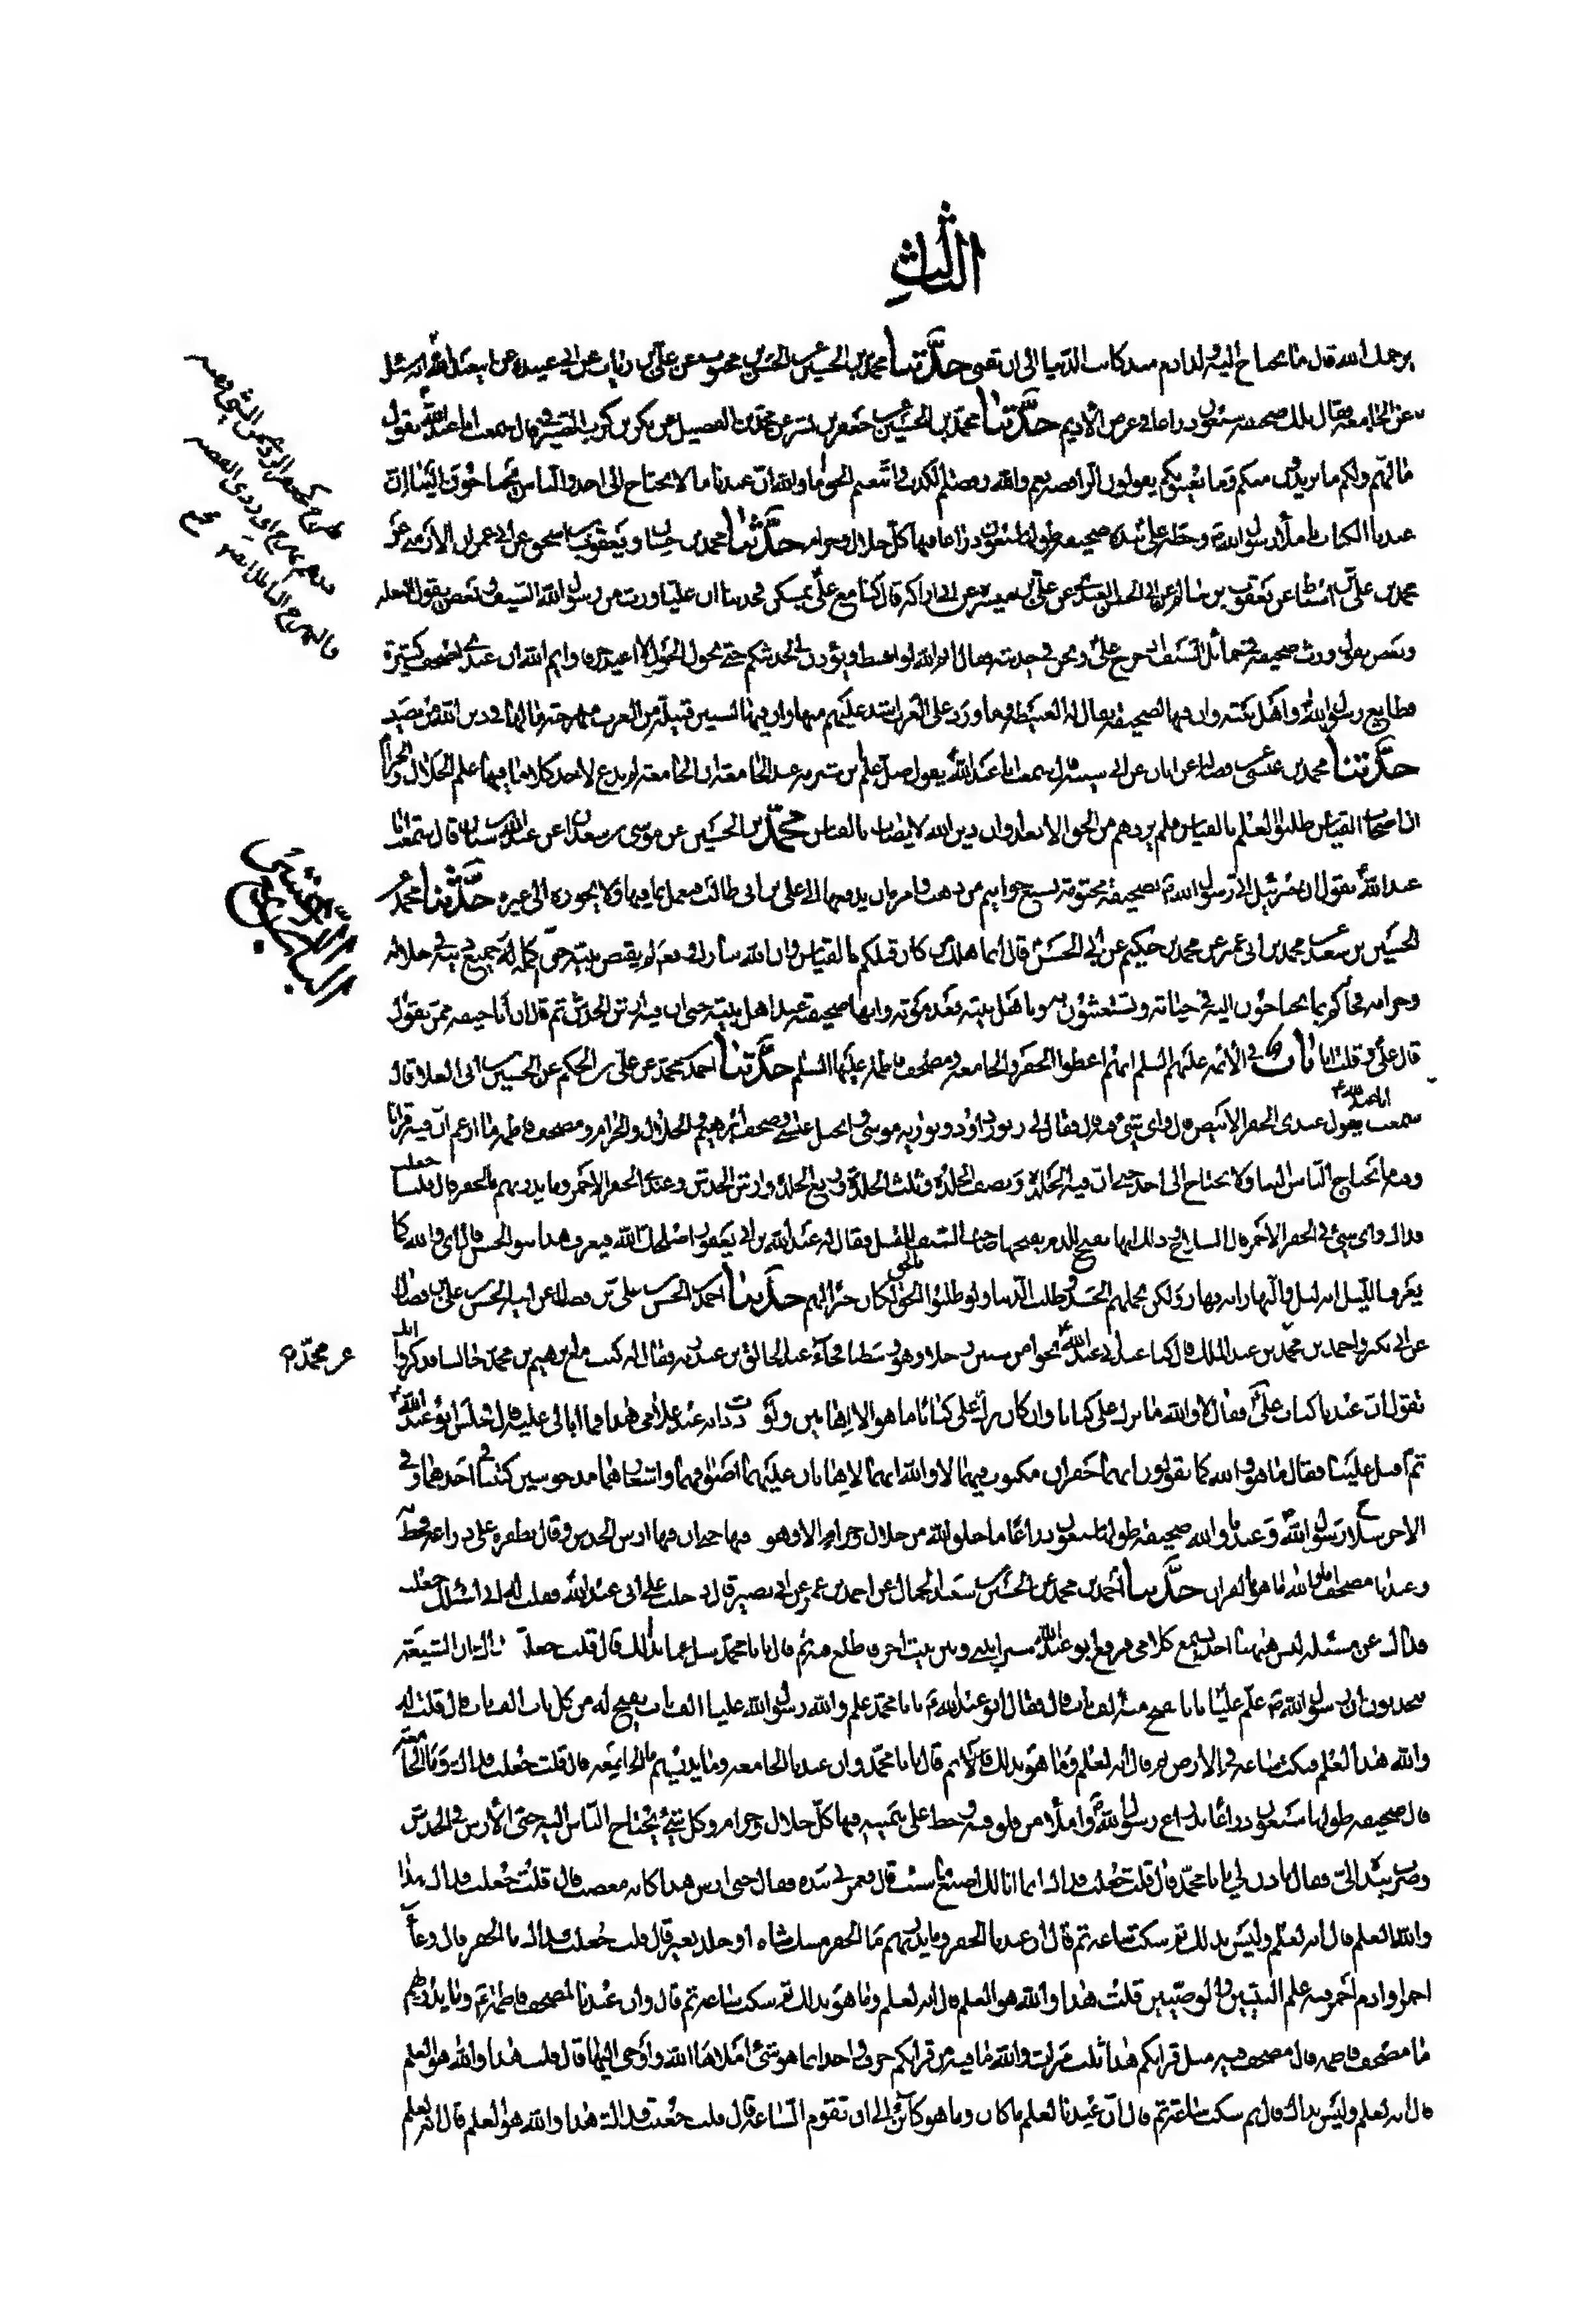 الثالث
حدثنا محمد بن الحسين عن الحسن بن محبوب عن علي بن رئاب عن أبي عبيدة
عن الجامعة فقال تلك صحيفة سبعون ذراعا في عرض الأديم حدثنا محمد بن الحسين عن جعفر بن بشير عن محمد بن الفضيل عن بكر بن كرب الصيرفي قال سمعت أبا عبد الله يقول
ما لهم ولكم ما يريدون منكم وما يعيبونكم يقولون الرافضة نعم والله رفضتم الكذب واتبعتم الحق أما والله ان عندنا ما لا نحتاج الى احد والناس يحتاجون الينا ان
عندنا الكتاب باملاء رسول الله وخطه علي بيده صحيفة طولها سبعون ذراعا فيها كل حلال وحرام حدثنا محمد بن حسان ويعقوب بن اسحق عن أبي عمران الأرمني عن
محمد بن علي بن اسباط عن يعقوب بن سالم عن أبي الحسن العبدي عن علي بن ميسرة عن أبي أراكة قال كنا مع علي بمسكن فحدثنا ان عليا ورث من رسول الله السيف وبعض يقول البغلة
وبعض يقول ورث صحيفة في حمائل السيف اذ خرج علي ونحن في حديثه فقال ايم الله لو انبسط ويؤذن لي لحدثتكم حتى يحول الحول لا اعيد حرفا وايم الله ان عندي لصحف كثيرة
قطايع رسول الله واهل بيته وان فيها لصحيفة يقال لها العبيطة وما ورد على العرب اشد عليهم منها وان فيها لستين قبيلة من العرب بهرجة ما لها في دين الله من نصيب
حدثنا محمد بن عيسى عن فضالة عن ابان عن أبي شيبة قال سمعت ابا عبد الله يقول ضل علم ابن شبرمة عند الجامعة ان الجامعة لم يدع لاحد كلاما فيها علم الحلال والحرام
ان اصحاب القياس طلبوا العلم بالقياس فلم يزدهم من الحق الا بعدا وان دين الله لا يصاب بالقياس محمد بن الحسين عن موسى بن سعدان عن عبد الله بن سنان قال سمعت ابا
عبد الله يقول ان جبرئيل اتى رسول الله بصحيفة مختومة بسبع خواتيم من ذهب وامره ان يدفعها الى علي بن ابي طالب فيعمل بما فيها ولا يجوزه الى غيره حدثنا محمد بن
الحسين بن سعيد عن محمد بن ابي عمير عن محمد بن حكيم عن أبي الحسن قال انما هلك من كان قبلكم بالقياس وان الله تبارك وتعالى لم يقبض نبيه حتى اكمل له جميع دينه في حلاله
وحرامه فجاءكم بما تحتاجون اليه في حياته وتستغيثون به وباهل بيته بعد موته وانها صحيفة عند اهل بيته حتى ان فيه ارش الخدش ثم قال ان ابا حنيفة ممن يقول
قال علي وقلت انا باب في الأئمة عليهم السلم انهم اعطوا الجفر والجامعة ومصحف فاطمة عليها السلم حدثنا احمد بن محمد عن علي بن الحكم عن الحسين بن ابي العلا قال
سمعت ابا عبد الله يقول عندي الجفر الابيض قال قلت واي شيء فيه قال فقال لي زبور داود وتورية موسى وانجيل عيسى وصحف ابرهيم والحلال والحرام ومصحف فاطمة ما ازعم ان فيه قرانا
وفيه ما يحتاج الناس الينا ولا نحتاج الى احد حتى ان فيه الجلدة ونصف الجلدة وثلث الجلدة وربع الجلدة وارش الخدش وعندي الجفر الاحمر وما يدريهم ما الجفر قال قلنا جعلت
فداك واي شيء في الجفر الاحمر قال السلاح وذلك انها يفتح للدم يفتحها صاحب السيف للقتل فقال له عبد الله بن ابي يعفور اصلحك الله فيعرف هذا بنو الحسن قال اي والله كما
يعرف الليل انه ليل والنهار انه نهار ولكن يحملهم الحسد وطلب الدنيا ولو طلبوا الحق بالحق لكان خيرا لهم حدثنا احمد بن الحسن بن علي بن فضال عن ابيه الحسن بن علي بن فضال
عن أبي بكير واحمد بن محمد عن محمد بن عبد الملك قال كنا عند أبي عبد الله نحوا من ستين رجلا وهو وسطنا فجاء عبد الخالق بن عبد ربه فقال له كنت مع ابرهيم بن محمد جالسا فذكروا انك
عن محمد
تقول ان عندنا كتاب علي فقال لا والله ما ترك علي كتابا وان كان ترك علي كتابا ما هو الا اهابين ولوددت انه عند غلامي هذا فما ابالي عليه قال فجلس ابو عبد الله
ثم اقبل علينا فقال ما هو والله كما يقولون انهما جفران مكتوب فيهما لا والله انهما لاهابان عليهما اصوافهما واشعارهما مدحوسين كتبا في احدهما وفي
الاخر سلاح رسول الله وعندنا والله صحيفة طولها سبعون ذراعا ما خلق الله من حلال وحرام الا وهو فيها حتى ان فيها ارش الخدش وقال بظفره على ذراعه فخط به
وعندنا مصحف اما والله ما هو بالقران حدثنا احمد بن محمد عن الحسين بن سعيد الجمال عن احمد بن عمر عن ابي بصير قال دخلت على ابي عبد الله فقلت له اني اسئلك جعلت
فداك عن مسئلة ليس ههنا احد يسمع كلامي فرفع ابو عبد الله سترا بيني وبين بيت اخر فاطلع فيه ثم قال يا با محمد سل عما بدا لك قال قلت جعلت فداك ان الشيعة
يتحدثون ان رسول الله علم عليا بابا يفتح منه الف باب قال فقال ابو عبد الله يا با محمد علم والله رسول الله عليا الف باب يفتح له من كل باب الف باب قال قلت له
والله هذا العلم فنكت ساعة في الارض ثم قال انه لعلم وما هو بذلك قال ثم قال يا با محمد وان عندنا الجامعة وما يدريهم ما الجامعة قال قلت جعلت فداك وما الجامعة
قال صحيفة طولها سبعون ذراعا بذراع رسول الله واملاه من فلق فيه وخط علي بيمينه فيها كل حلال وحرام وكل شيء يحتاج الناس اليه حتى الارش في الخدش
وضرب بيده الي فقال تاذن لي يا با محمد قال قلت جعلت فداك انما انا لك اصنع ما شئت قال فغمزني بيده فقال حتى ارش هذا كانه مغضب قال قلت جعلت فداك هذا
والله العلم قال انه لعلم وليس بذلك ثم سكت ساعة ثم قال ان عندنا الجفر وما يدريهم ما الجفر مسك شاة او جلد بعير قال قلت جعلت فداك ما الجفر قال وعاء
احمر وادم احمر فيه علم النبيين والوصيين قلت هذا والله هو العلم قال انه لعلم وما هو بذلك ثم سكت ساعة ثم قال وان عندنا لمصحف فاطمة وما يدريهم
ما مصحف فاطمة قال مصحف فيه مثل قرانكم هذا ثلث مرات والله ما فيه من قرانكم حرف واحد انما هو شيء املاها الله واوحى اليها قال قلت هذا والله هو العلم
قال انه لعلم وليس بذاك قال ثم سكت ساعة ثم قال ان عندنا لعلم ما كان وما هو كائن الى ان تقوم الساعة قال قلت جعلت فداك هذا والله هو العلم قال انه لعلم